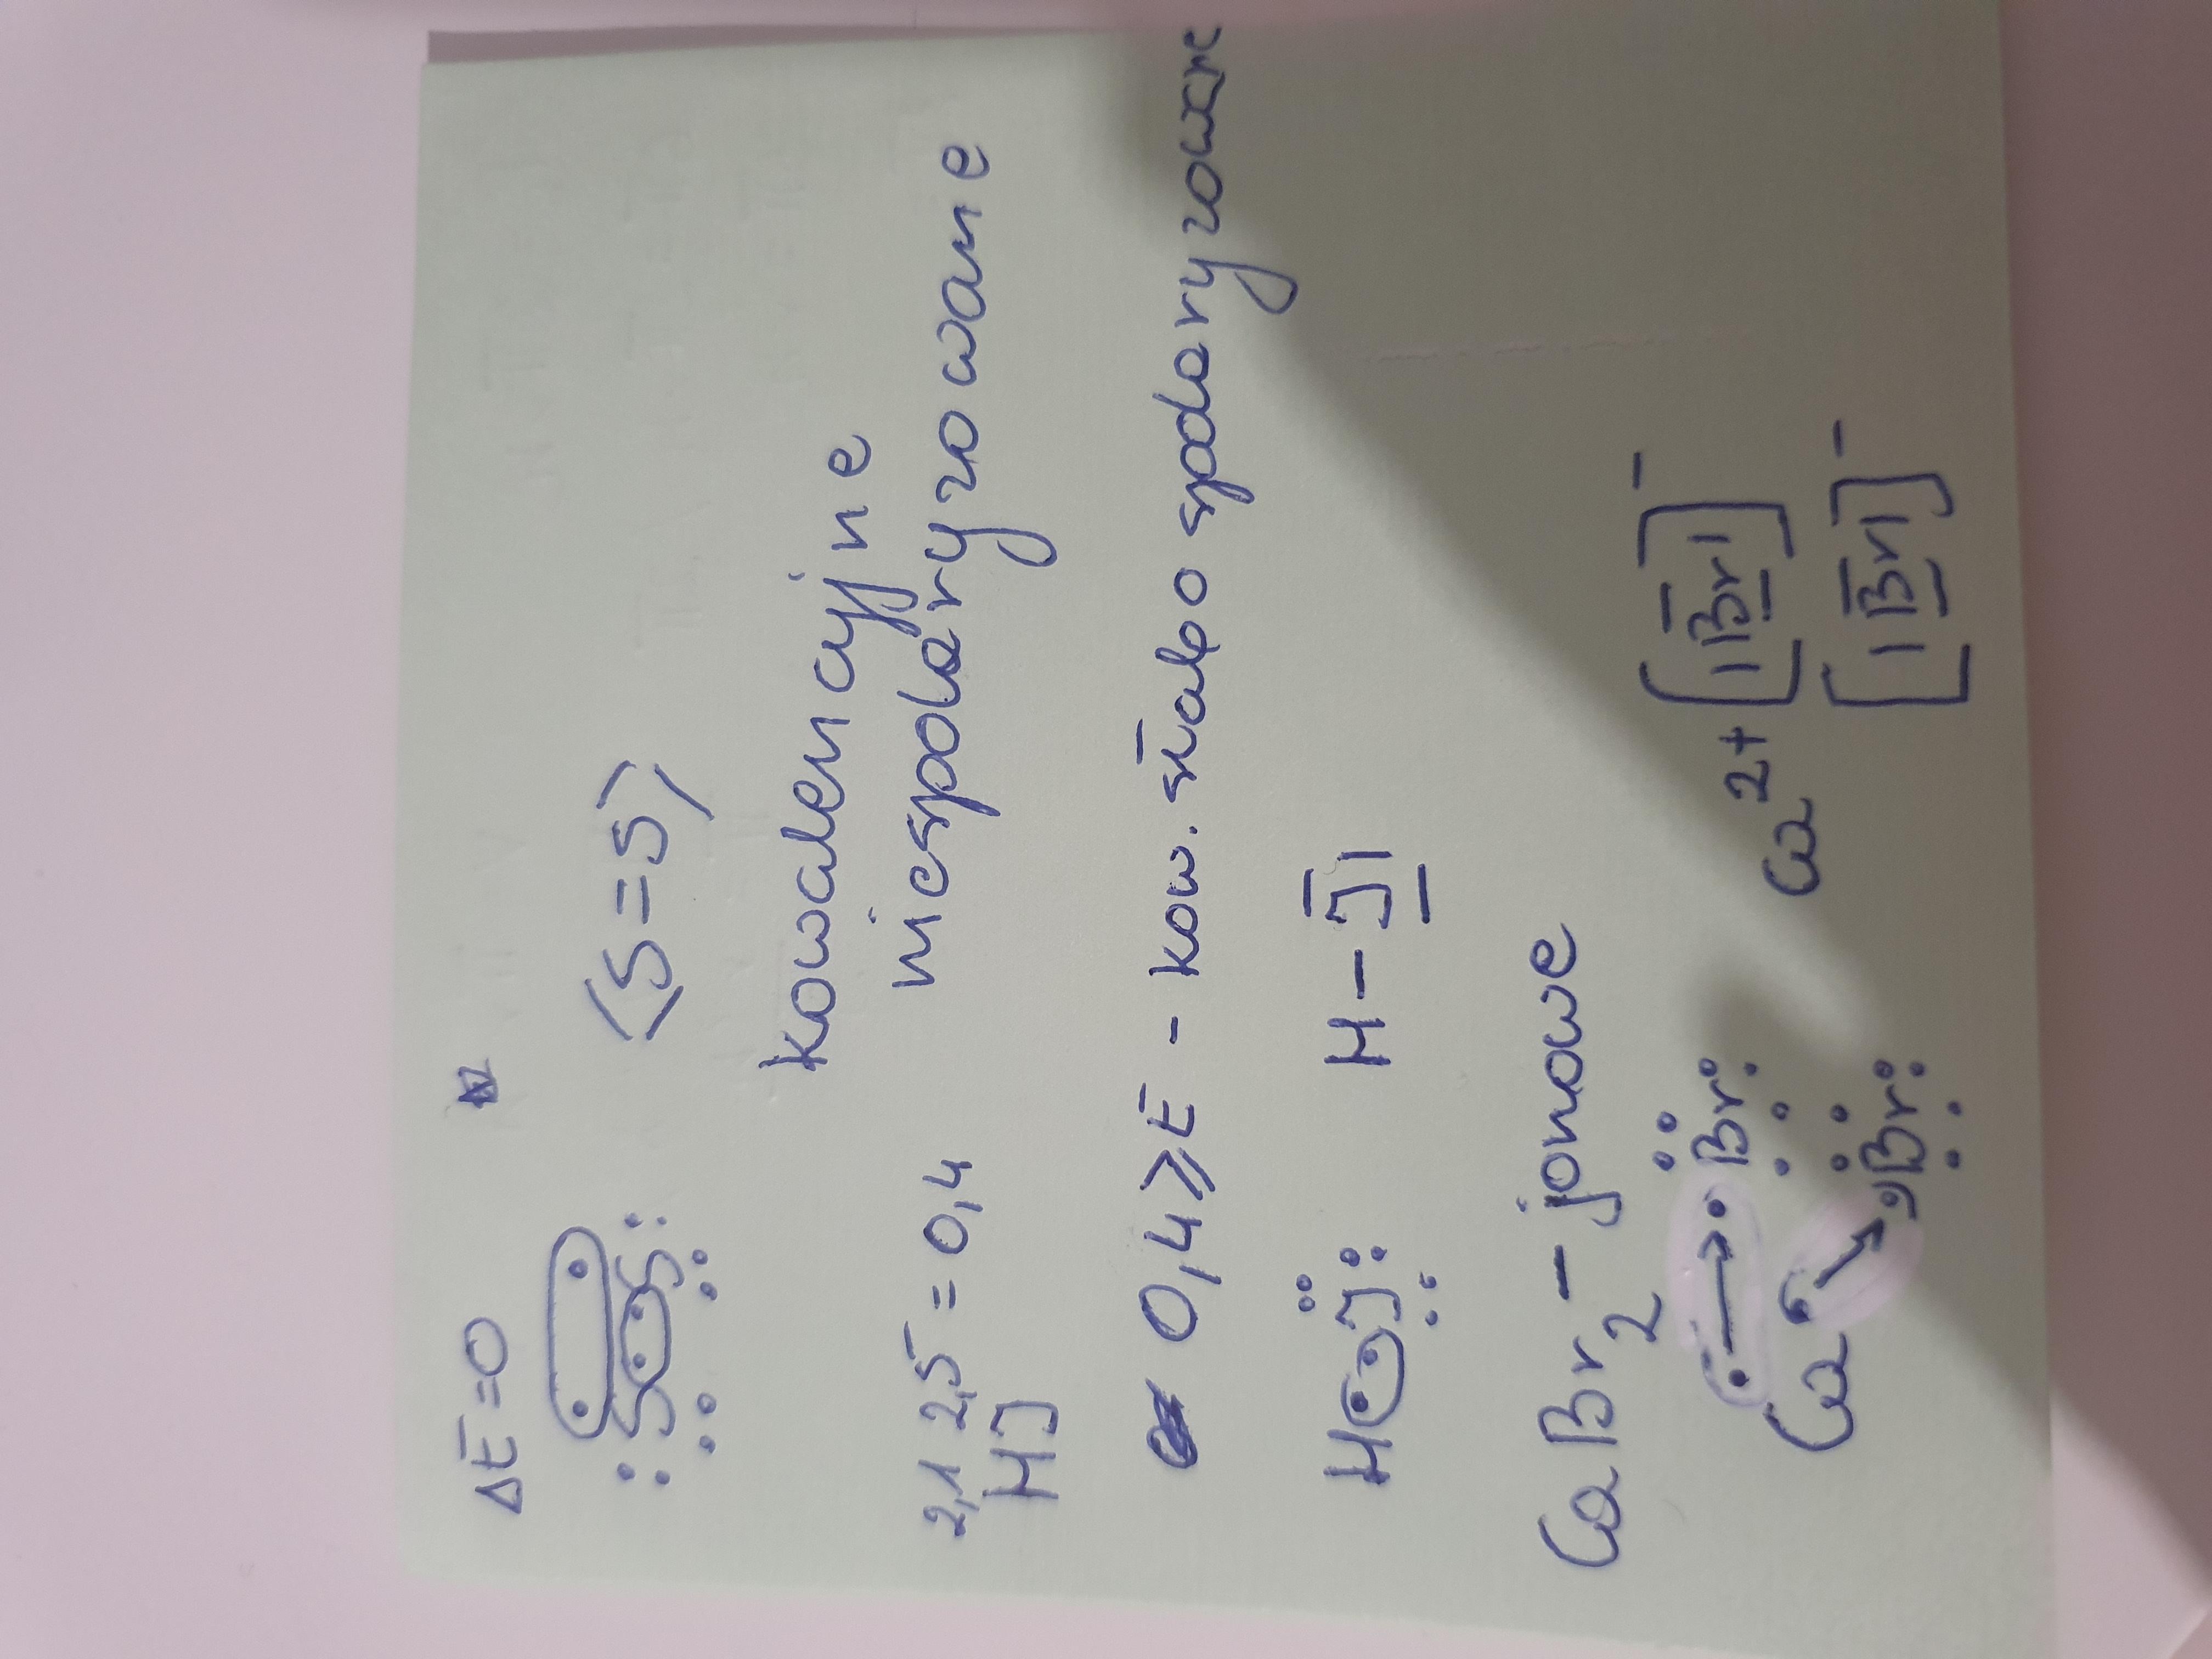 ΔE=0
⟨S=S⟩
:S S:
kowalencyjne
niespolaryzowane
2,1 2,5 = 0,4
HJ
0,4⩾E - kow. słabo spolaryzowane
H J: H-J|
CaBr2 - jonowe
Ca Br: Ca2+ [|Br|]-
Br: [|Br|]-